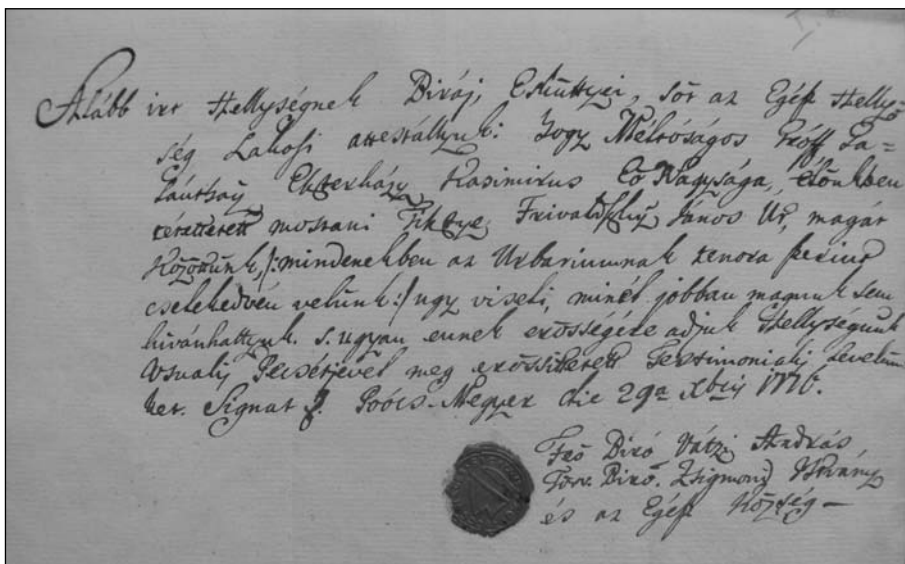 Alább irt Hellységnek Biráj, Eskuttyei, sőt az Egész Helly=
ség Lakosi attestállyuk: hogy Méltóságos Gróff Ga=
lánthay Eszterházy Kasimirus Eő Nagysága, élőnkben
mostani Tiszttye, Frivaldszky János Ur, magát
Közöttünk, /: mindenekben az Urbariumnak tenora szerint
cselekedvén velünk :/ ugy viseli, minél jobban magunk sem
kivánhattyuk. s. ugyan ennek erősségére adjuk Hellységünk
Usualis Pecsétjevel meg erőssittetett Testimonialis Levelün
ket. Signat. Poócs-Megyer die 29a Xbris 1776.
Fző Biró Vátzi András
Törv. Biró. Zsigmond Istvány
és az Egész Község —